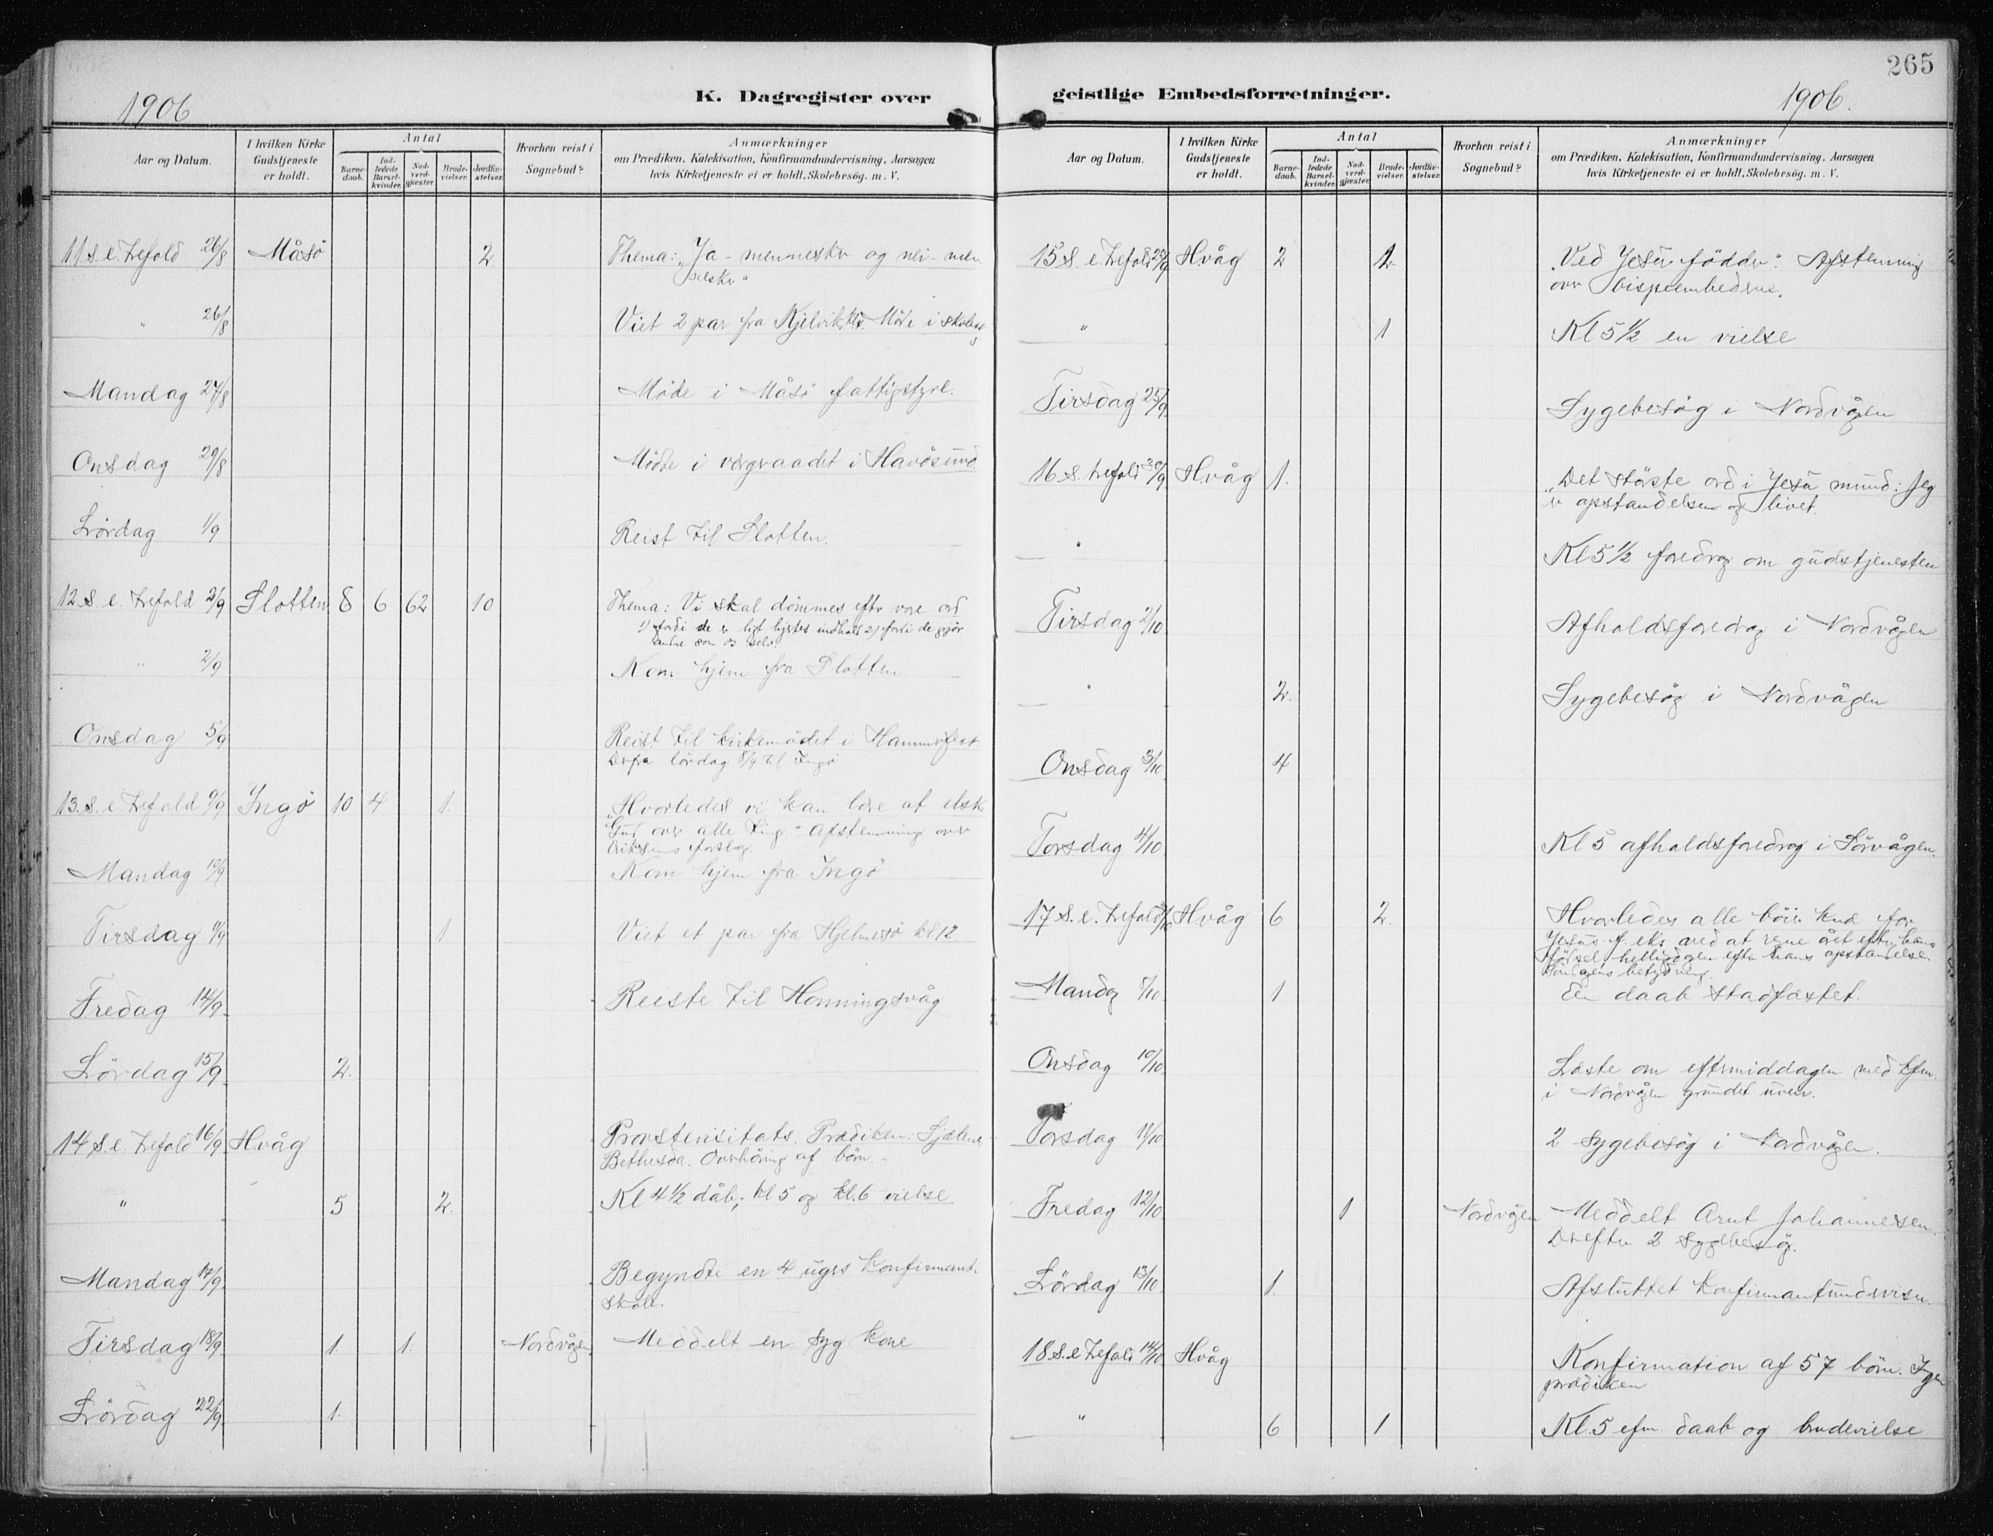 265
1906
K. Dagregister over
geistlige Embedsforretninger.
1906.
Aar og Datum.
I hvilken Kirke Gudstjeneste er holdt.
Antal
Barnedaab.
Indledede Barselkvinder.
Nadverdgjæster.
Brudevielser.
Jordfæstelser.
Hvorhen reist i Sognebud?
Anmærkninger
om Prædiken, Katekisation, Konfirmandundervisning, Aarsagen
hvis Kirketjeneste ei er holdt, Skolebesøg, m. V.
11 S. e. Trefold 26/8 Måsö 2 Thema: "Ja-mennesker og nei-men
nesker"
" 26/8 Viet 2 par fra Kjelvik. Möde i
Mandag 27/8 Möde i Måsö fattigstyre.
Onsdag 29/8 Möde i værgeraadet i Havösund
Lördag 1/9 Reist til Slotten.
12 S. e. Trefold 2/9 Slotten 8 6 62 10 Thema: Vi skal dömmes efter vore ord
1) fordi de er ligt hjertes indhold 2) fordi de gjör
andre som os selv.
" 2/9 Kom hjem fra Slotten
Onsdag 5/9 Reist til kirkemödet i Hammerfest
Derfra lördag 8/9 til Ingö
13. S. e. Trefold 9/9 Ingö 10 4 1. "Hvorledes vi kan lære at elske
Gud over alle ting." Afstemning over
forslag.
Mandag 10/9 Kom hjem fra Ingö
Tirsdag 11/9 1 Viet et par fra Hjelmesö kl 12
Fredag 14/9 Reiste til Honningsvåg
Lördag 15/9 2.
14 S. e. Trefold 16/9 Hvåg Provstevisitats. Prædiken: Sjælens
Bethesda. Overhöring af börn.
" 5 2. Kl 4½ dåb, kl 5 og kl. 6 vielse.
Mandag 17/9 Begyndte en 4 ugers konfirmant-
skole.
Tirsdag 18/9 1. 1. Nordvågen Meddelt en syg kone
Lördag 22/9 1.
Aar og Datum.
I hvilken Kirke Gudstjeneste er holdt.
Antal
Barnedaab.
Indledede Barselkvinder.
Nadvergjæster.
Brudevielser.
Jordfæstelser.
Hvorhen reist i Sognebud?
Anmærkninger
om Prædiken, Katekisation, Konfirmandundervisning, Aarsagen
hvis Kirketjeneste ei er holdt, Skolebesøg, m. V.
15 S. e. Trefold 23/9 Hvåg 2 1. "Ved Jesu födder". Afstemning
over bispeembederne.
" 1 Kl 5½ en vielse
Tirsdag 25/9 Sygebesög i Nordvågen
16 S. Trefold 30/9 Hvåg 1. "Det störste ord i Jesu mund: Jeg
er opstandelsen og livet.
" Kl 5½ foredrag om gudstjenesten
Tirsdag 2/10 Afholdsforedrag i Nordvågen
" 2. Sygebesög i Nordvågen
Onsdag 3/10 4
Torsdag 4/10 Kl 5 afholdsforedrag i Sörvågen.
17 S. e. Trefold 7/10 Hvåg 6 2. Hvorledes alle böier knæ for
Jesus f. eks. ved at regne året efter hans
födsel helligdagen efter hans opstandelse.
Söndagens betydning.
Mandag 8/10 1 En daab stadfæstet.
Onsdag 10/10 Læste om eftermiddagen med kfm.
i Nordvågen grundet uveir.
Torsdag 11/10 2 sygebesög i Nordvågen.
Fredag 12/10 1 Nordvågen Meddelt Arnt Johannesen
Derefter 2 Sygebesög.
Lördag 13/10 1. Afsluttet konfirmantundervisn.
18 S. e Trefold 14/10 Hvåg Konfirmation af 57 börn. Ingen
prædiken
" 6 1 Kl. 5 efm daab og brudevielse